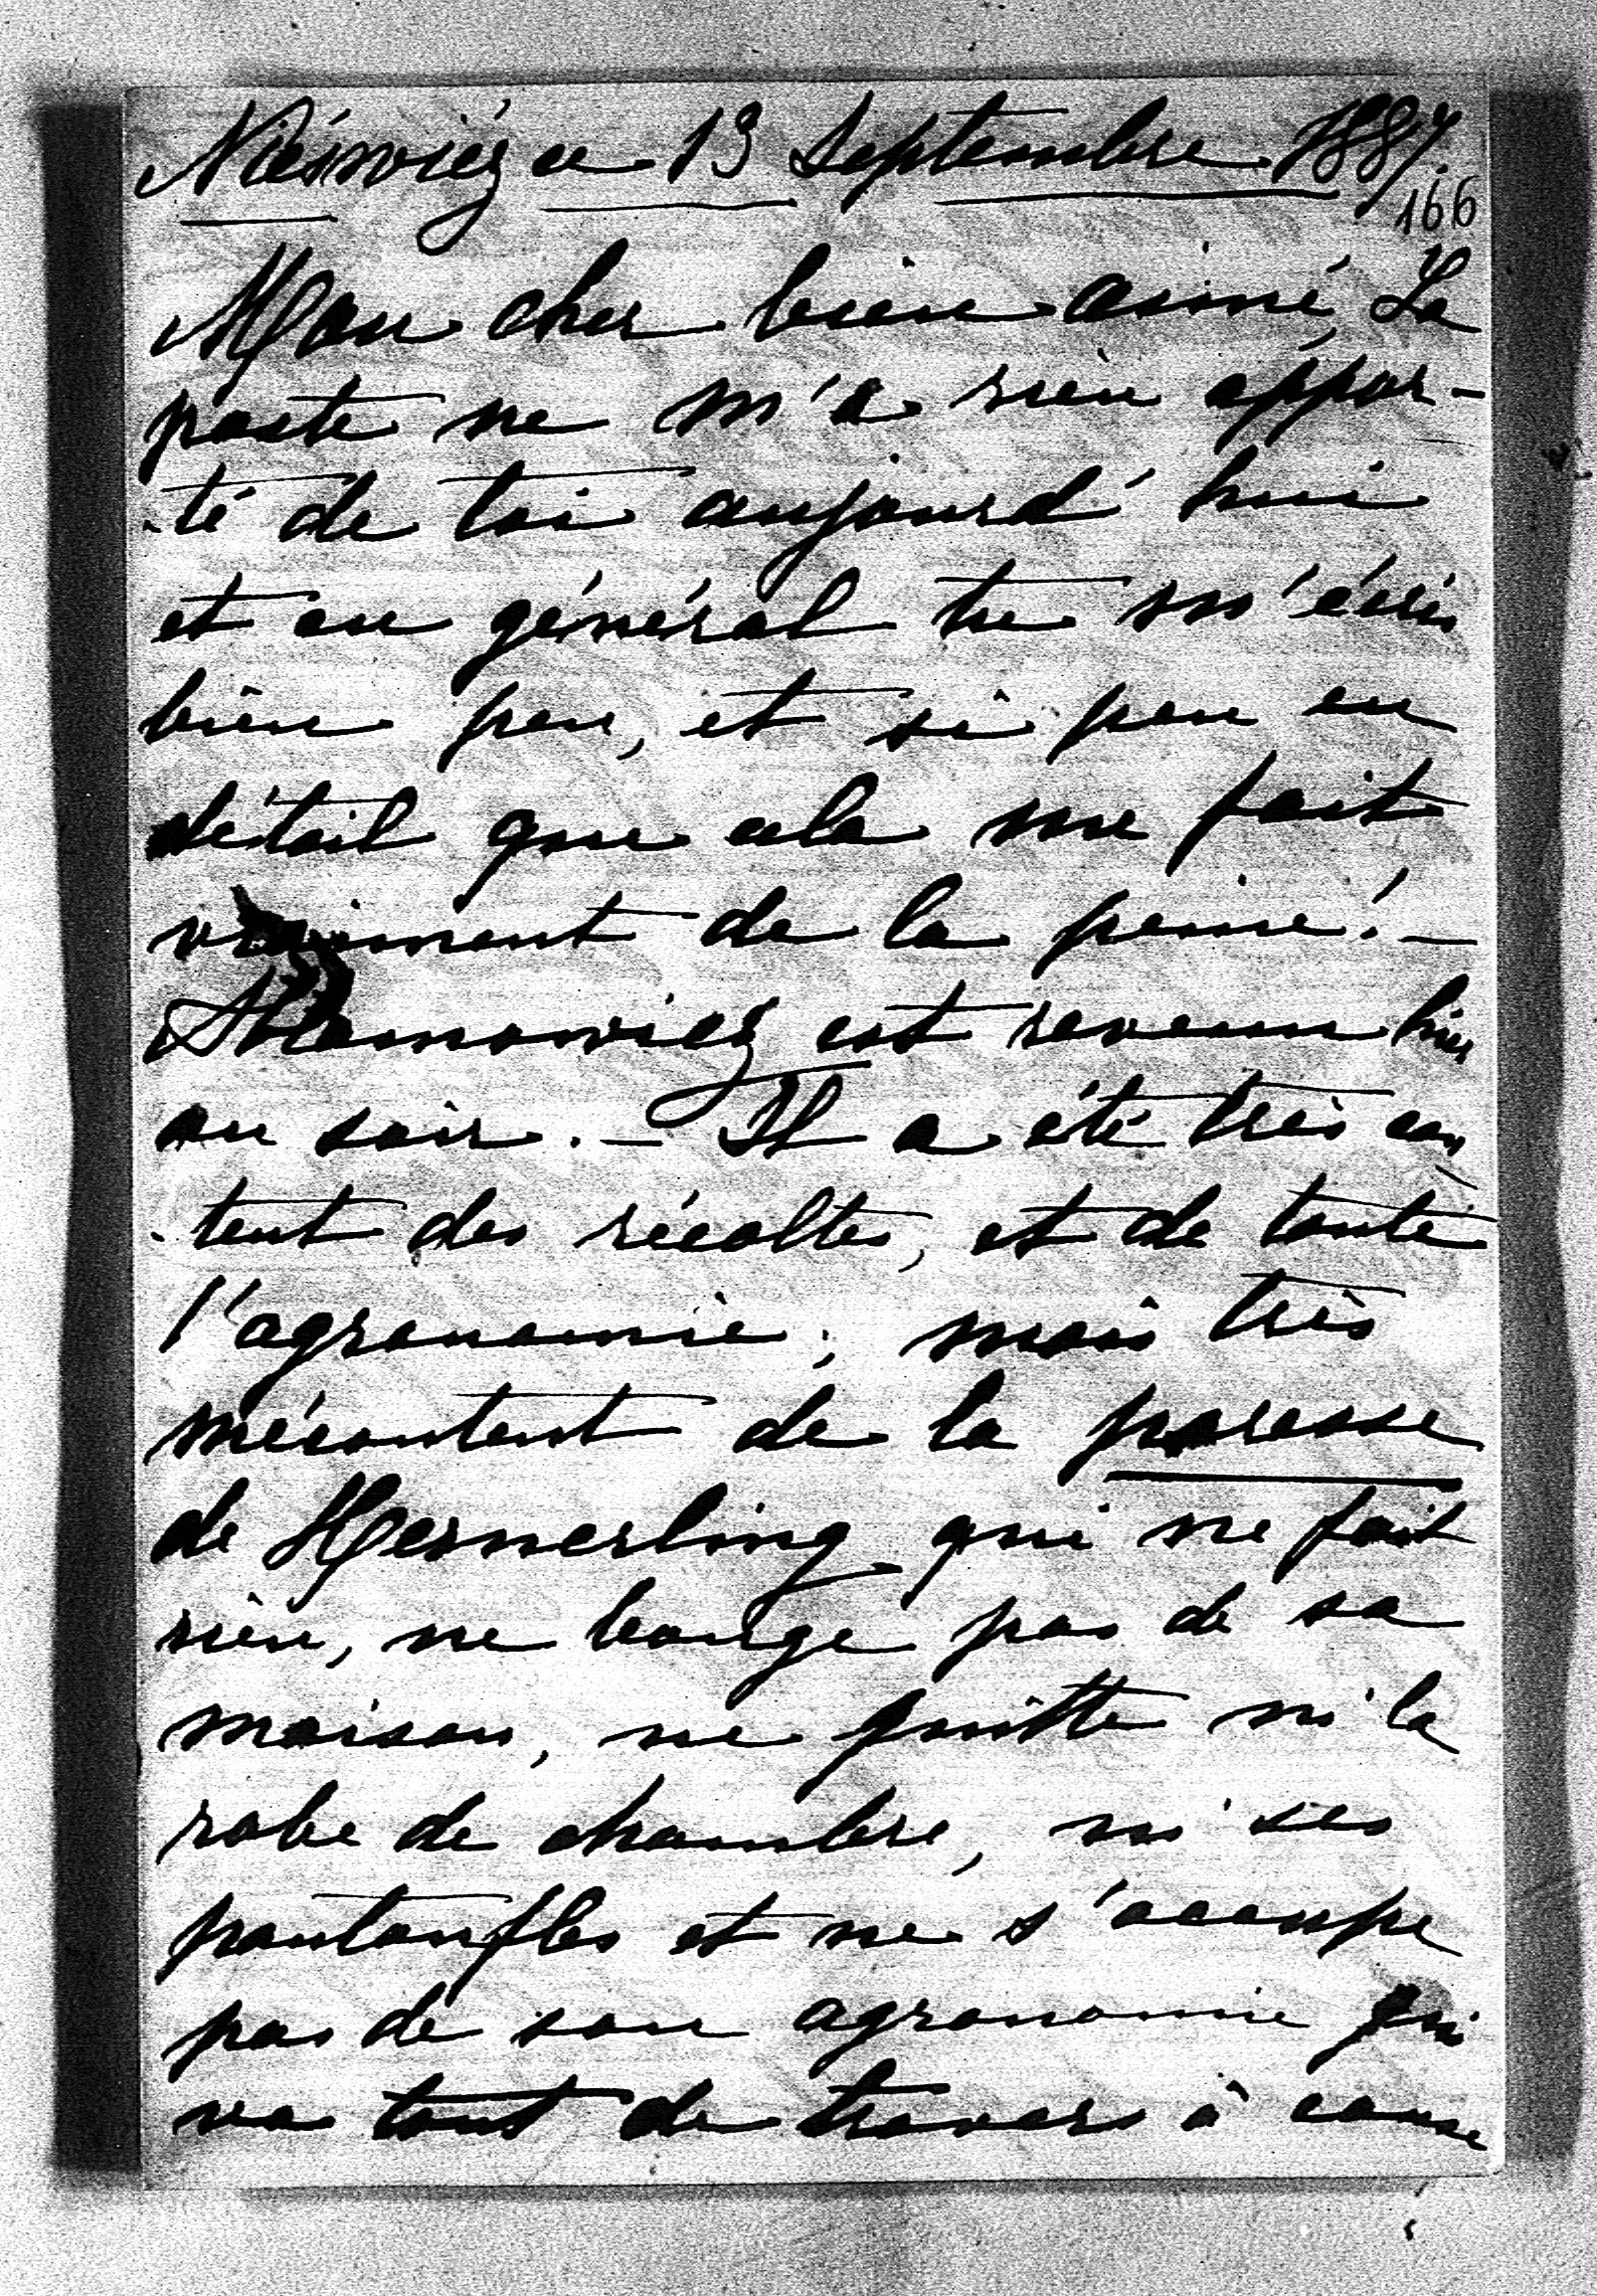 Niéświéz ce 13 Septembre 1887.
166
Mon cher bien aimé, La
poste ne m'a rien appor-
-té de toi aujourd'hui
et en général tu m'écris
bien peu, et si peu en
détail que cela me fait
vraiment de la peine! —
est revenu hier
au soir. — Il a été très con
-tent des récoltes, et de toute
l'agronomie, mais très
mécontent de la paresse
de Hermerling qui ne fait
rien, ne bouge pas de sa
maison, ne quitte ni la
robe de chambre, ni ses
pantoufles et ne s'occupe
pas de son agronomie qui
va tout de travers à cause